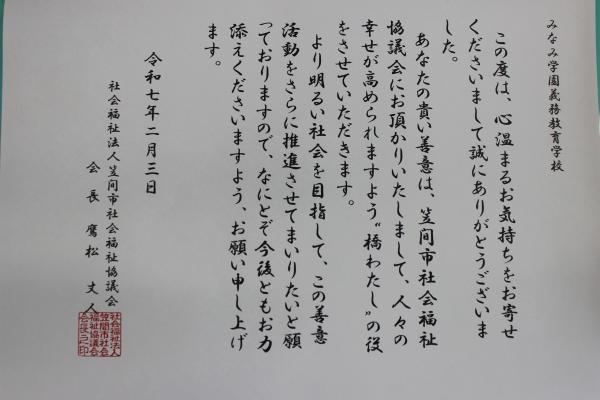 みなみ学園義務教育学校
この度は、心温まるお気持ちをお寄せ
くださいまして誠にありがとうございま
した。
あなたの貴い善意は、笠間市社会福祉
協議会にお頂かりいたしまして、人々の
幸せが高められますよう“橋わたし”の役
をさせていただきます。
より明るい社会を目指して、この善意
活動をさらに推進させてまいりたいと願
っておりますので、なにとぞ今後ともお力
添えくださいますよう、お願い申し上げ
ます。
令和七年二月三日
社会福祉法人笠間市社会福祉協議会
会長 鷹松 丈人
社会福祉法人
笠間市社会
福祉協議会
会長之印